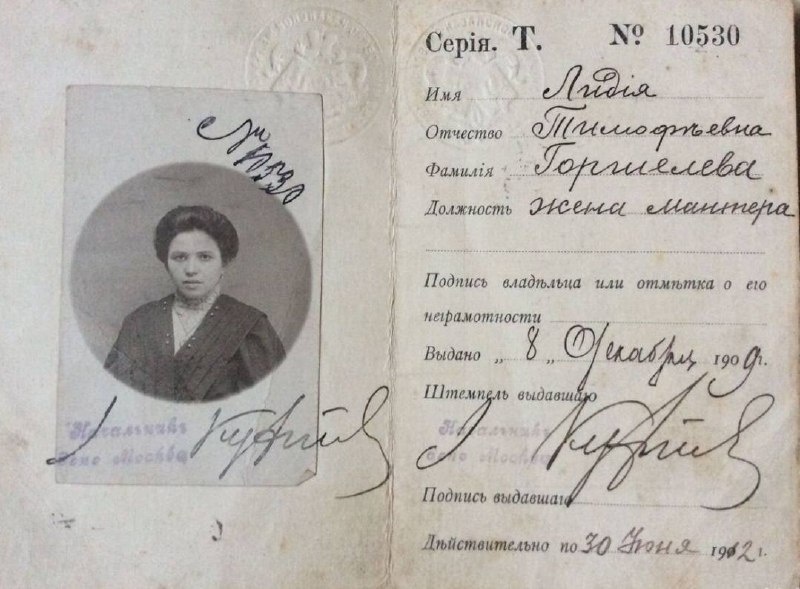 №
10530
Начальникъ
Депо Москва
Серія. Т. № 10530
Имя Лидія
Отчество Тимофѣевна
Фамилія Горшелева
Должность жена мантера
Подпись владѣльца или отмѣтка о его
неграмотности
Выдано „ 8 „ Декабря 1909 г.
Штемпель выдавшаго
Начальникъ
Депо Москва
Подпись выдавшаго
Дѣйствительно по 30 Іюня 1912 г.